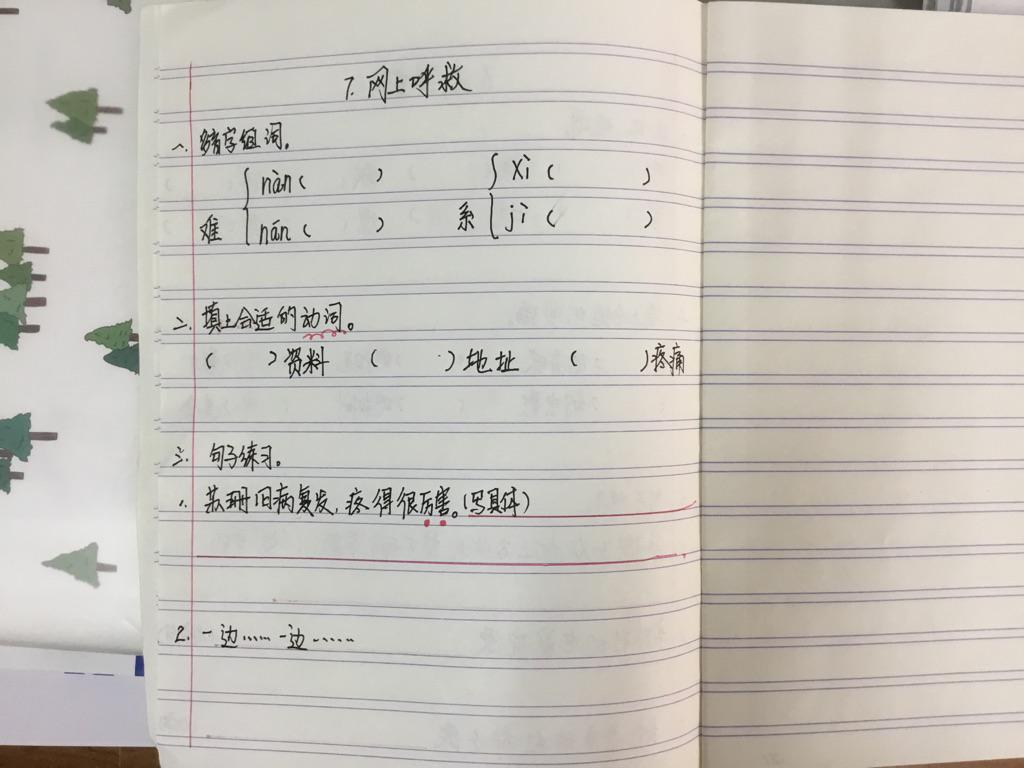 7. 网上呼救
一. 多音字组词。
难 { nàn (      )   系 { xì (      )
nán (      )   jì (      )
二. 填上合适的动词。
(      )资料 (      )地址 (      )疼痛
三. 句子练习。
1. 苏珊旧病复发,疼得很厉害。(写具体)
2. 一边……一边……